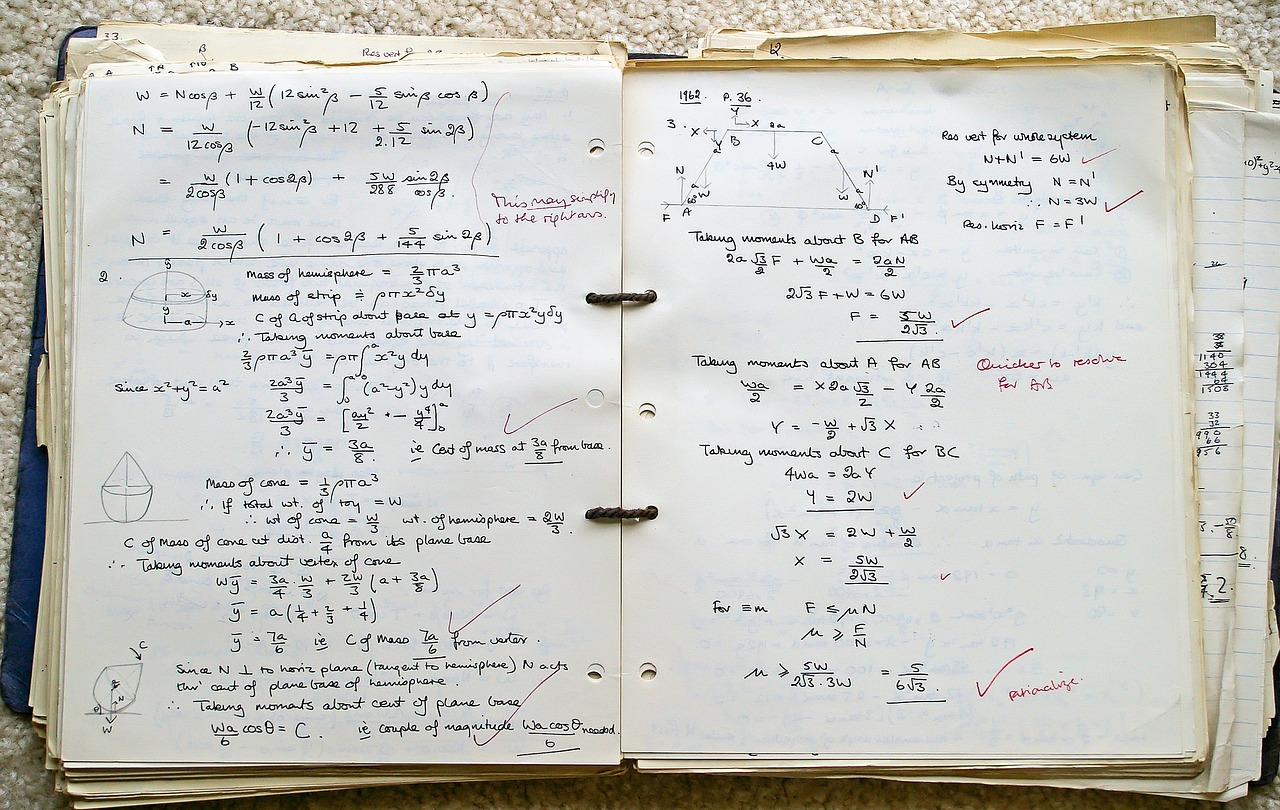 33.
β
Res vert
W = Ncosβ + W/12 (12sin²β − 5/12 sinβ cosβ)
N = W/12cosβ (−12sin²β + 12 + 5/2.12 sin2β)
= W/2cosβ (1 + cos2β) + 5W/288 sin2β/cosβ.
This may simplify
to the right ans.
N = W/2cosβ (1 + cos2β + 5/144 sin2β)
2.
y
x δy
y
a x
Mass of hemisphere = 2/3 πa³
Mass of strip ≑ ρπx²δy
C of G of strip about base at y = ρπx²yδy
∴ Taking moments about base
2/3 ρπa³ȳ = ρπ∫₀ᵃ x²y dy
Since x²+y²=a² 2a³ȳ/3 = ∫₀ᵃ (a²−y²)y dy
2a³ȳ/3 = [ay²/2 − y⁴/4]₀ᵃ
∴ ȳ = 3a/8 ie Cent of mass at 3a/8 from base.
Mass of cone = 1/3 ρπa³
∴ If total wt. of toy = W
∴ wt of cone = W/3 wt. of hemisphere = 2W/3.
C of Mass of cone at dist. a/4 from its plane base
∴ Taking moments about vertex of cone
Wȳ = 3a/4 . W/3 + 2W/3 (a + 3a/8)
ȳ = a(1/4 + 2/3 + 1/4)
ȳ = 7a/6 ie C of Mass 7a/6 from vertex.
C
N
θ
W
Since N ⊥ to horiz plane (tangent to hemisphere) N acts
thro' cent of plane base of hemisphere.
∴ Taking moments about cent of plane base
Wa/6 cosθ = C. ie couple of magnitude Wa cosθ/6 needed.
62.
1962. P. 36.
3.
Y
X X 2a
Y B C
a a
4W
N a W W a N'
60° 60°
F A D F'
Res vert for whole system
N+N' = 6W
By symmetry N = N'
∴ N = 3W
Res. horiz F = F'
Taking moments about B for AB
2a √3/2 F + Wa/2 = 2aN/2
2√3 F + W = 6W
F = 5W/2√3.
Taking moments about A for AB
Quicker to resolve
for AB
Wa/2 = X 2a √3/2 − Y 2a/2
Y = −W/2 + √3 X
Taking moments about C for BC
4Wa = 2aY
Y = 2W
√3 X = 2W + W/2
X = 5W/2√3
For ≡m F ≤ μN
μ ≥ F/N
μ ≥ 5W/2√3.3W = 5/6√3.
rationalize.
38
38
1140
304
1444
64
1508
33
32
990
66
956